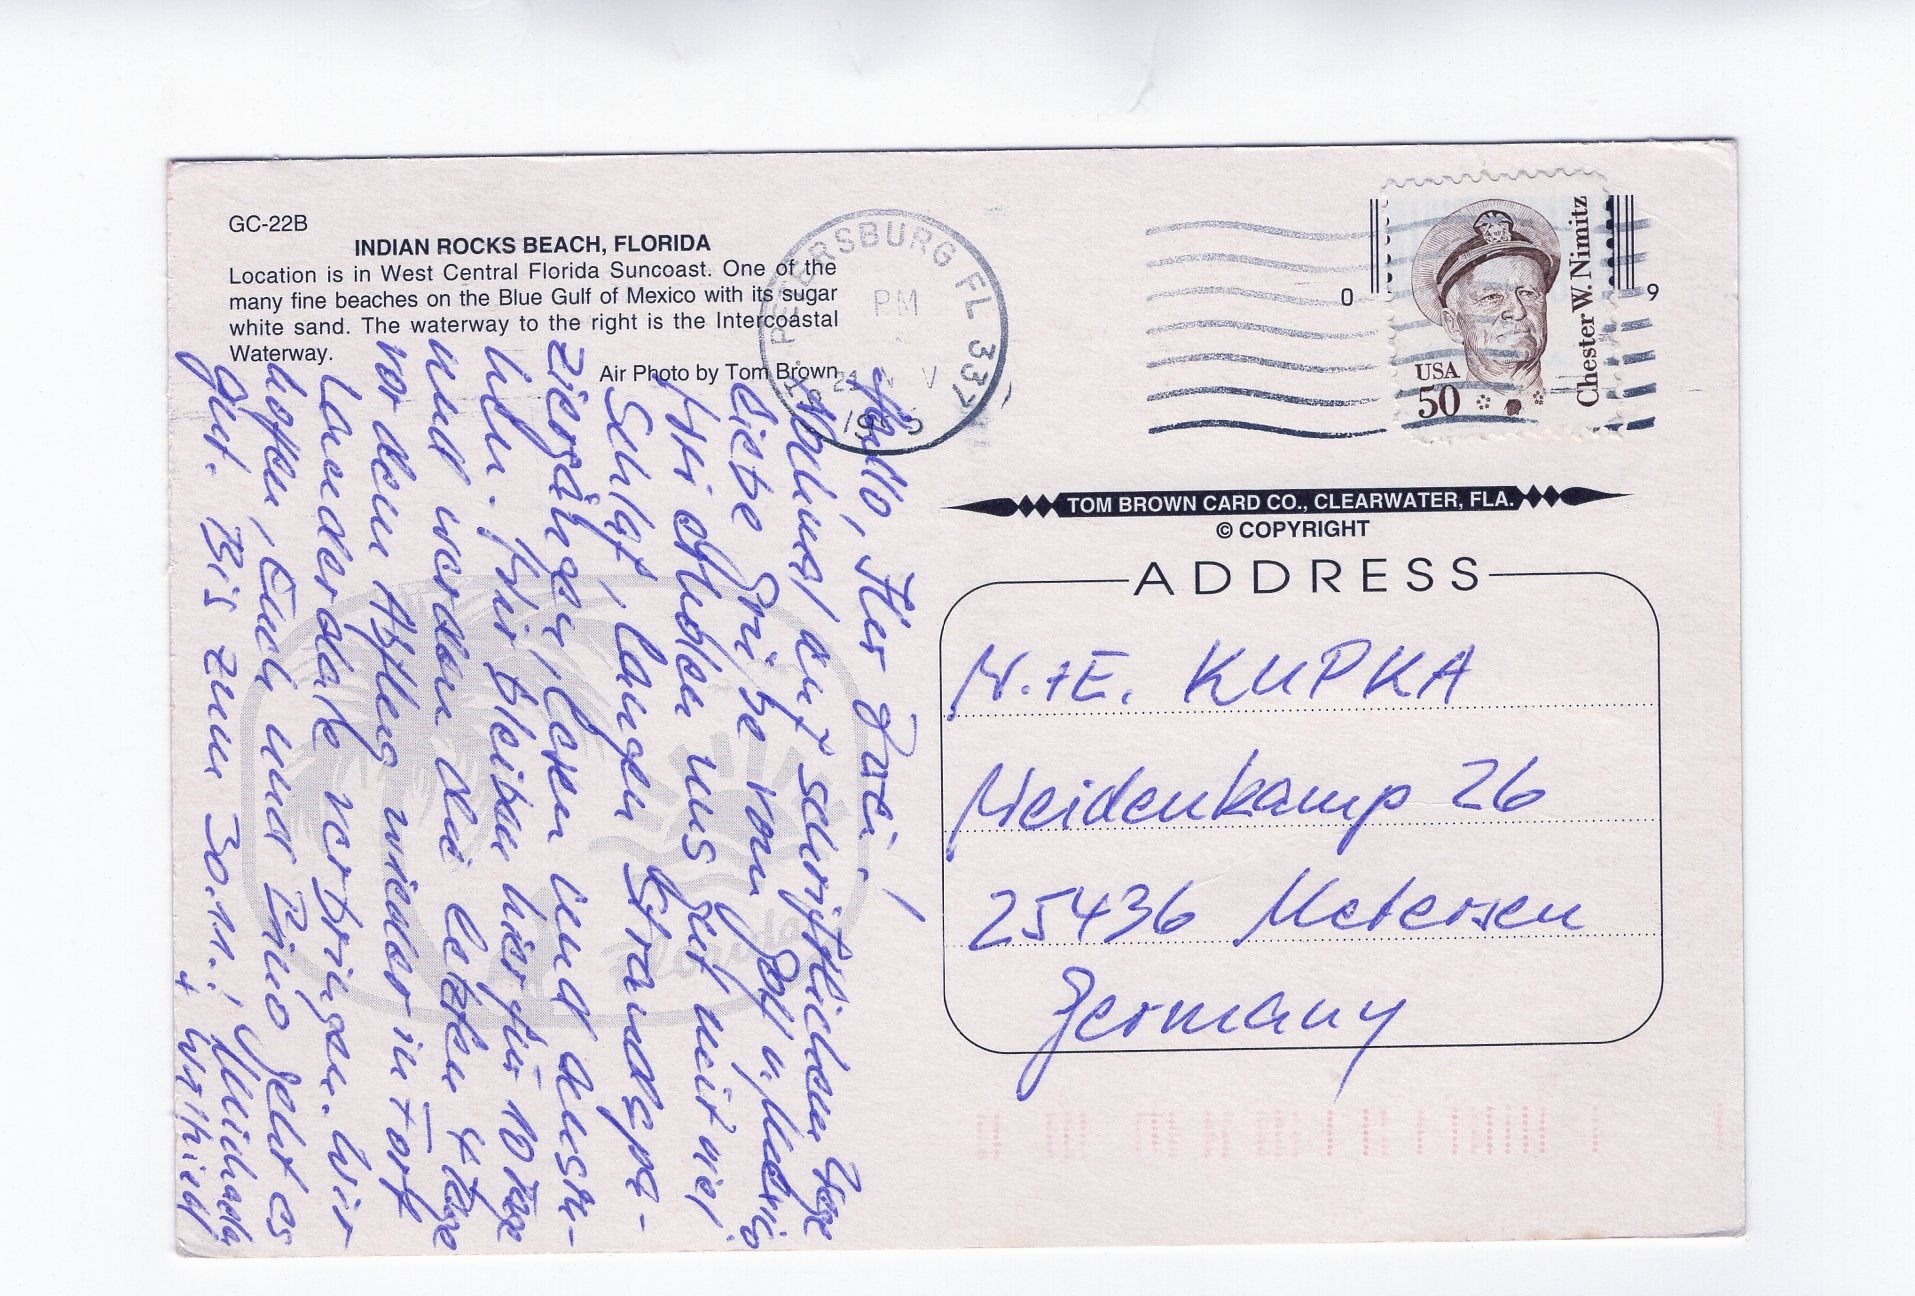 GC-22B
INDIAN ROCKS BEACH, FLORIDA
Location is in West Central Florida Suncoast. One of the
many fine beaches on the Blue Gulf of Mexico with its sugar
white sand. The waterway to the right is the Intercoastal
Waterway.
Air Photo by Tom Brown
PETERSBURG FL 337
PM
0
9
USA
50
Chester W. Nimitz
TOM BROWN CARD CO., CLEARWATER, FLA.
© COPYRIGHT
ADDRESS
KUPKA
26
25436 Uetersen
Germany
Hallo, Ihr Zwei!
auf schriftlichem Wege
liebe Grüße vom Golf v. Mexiko
Wir erholen uns gut mit viel
Schlaf, langen Strandspa-
ziergängen, lesen und ausru-
hen. Wir bleiben hier für 10 Tage
und werden die letzten 4 Tage
vor dem Abflug wieder in Fort
Lauderdale verbringen. Wir
hoffen, Euch und geht es
gut. Bis zum 30.11.!
+ Wilfried